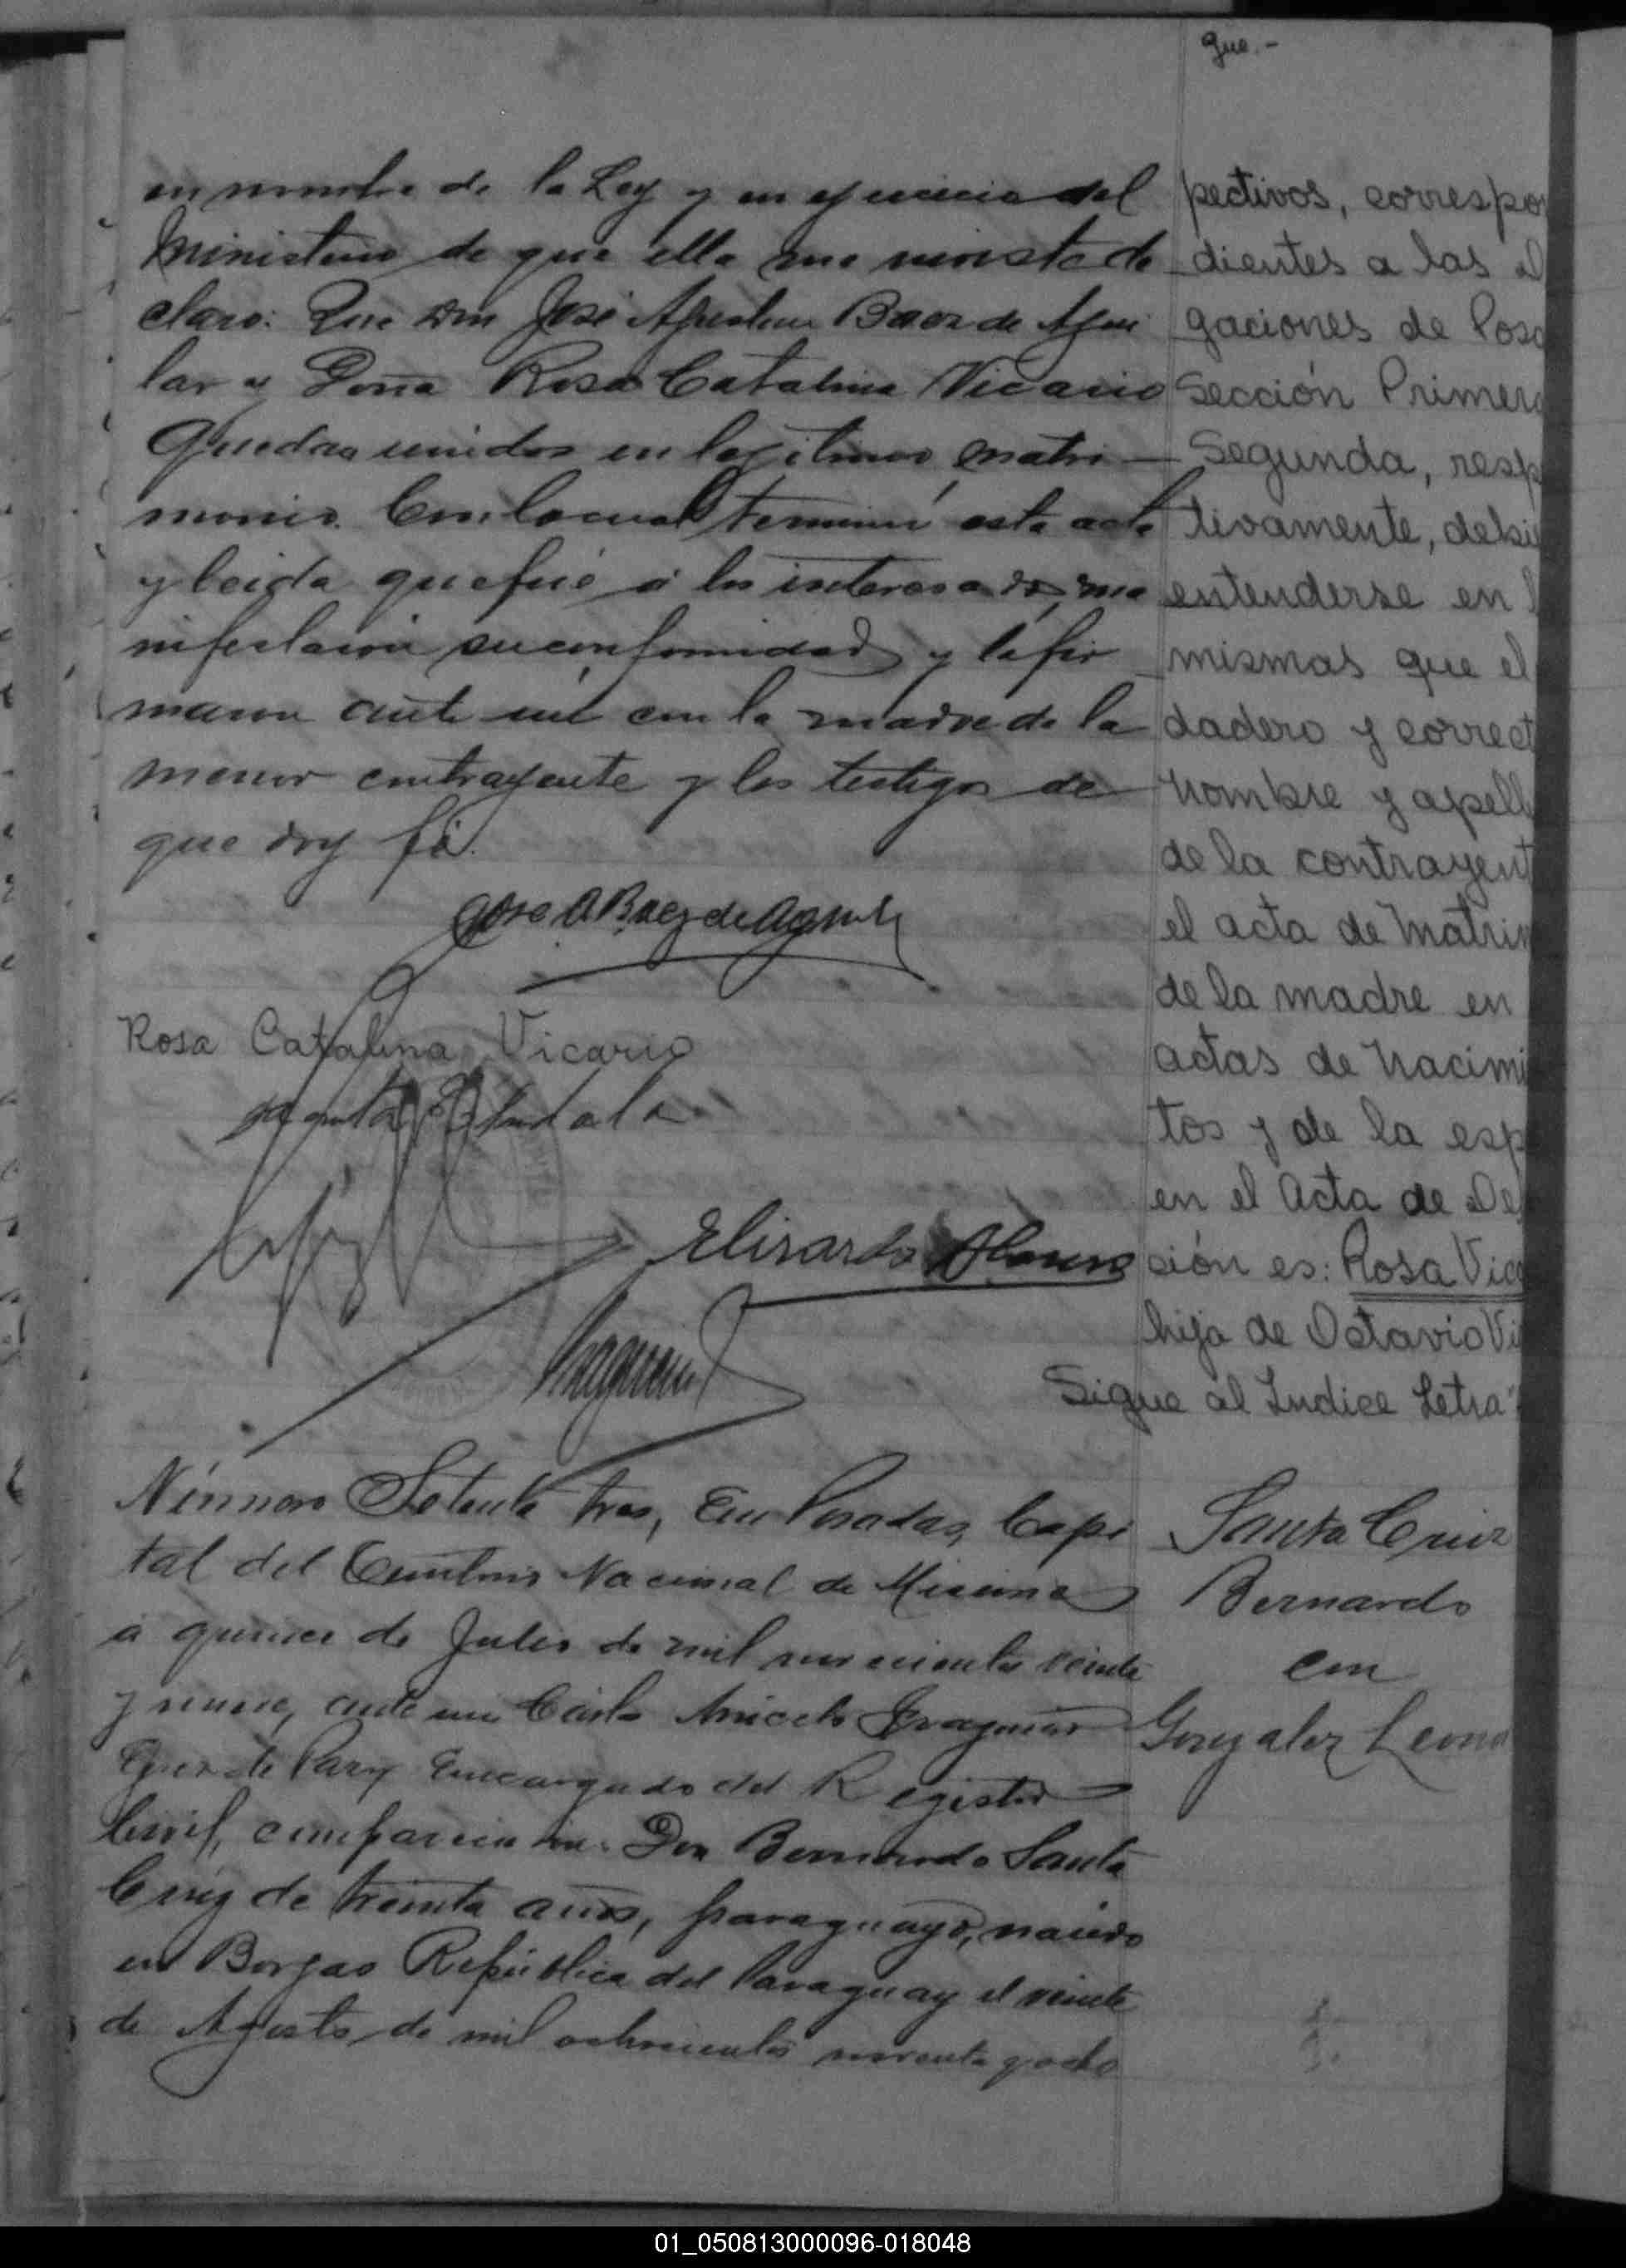 que.-
en nombre de la Ley y en ejercicio del
Ministerio de que ella me reviste de
claro: Que Don José Agustin Baez de Agui
lar y Doña Rosa Catalina Vicario
Quedan unidos en legitimo matri-
monio. Con lo cual terminó esta acta
y leida que fué á los interesados, ma
nifestaron su conformidad y la fir
maron ante mi con la madre de la
menor contrayente y los testigos de
que doy fé.
Jose A Baez de Aguilar
Rosa Catalina Vicario
Elisardo
pectivos, correspon
dientes a las
gaciones de Posa
Sección Primera
Segunda, resp
tivamente, debie
entenderse en l
mismas que el
dadero y correct
nombre y apell
de la contrayent
el acta de matrim
de la madre en
actas de nacimi
tos y de la esp
en el Acta de De
ción es: Rosa Vica
hija de Octavio Vi
Sigue al Indice Letra
Número Setenta tres, En Posadas, Capi
tal del Territorio Nacional de Misiones
á quince de Julio de mil novecientos veinte
y nueve, ante mi Carlos Aniceto
Juez de Paz Encargado del Registro
Civil, comparecieron: Don Bernardo Santa
Cruz de treinta años, paraguayo, nacido
en Borjas República del Paraguay el veinte
de Agosto de mil ochocientos noventa y ocho
Santa Cruz
Bernardo
con
Gonzalez Leona
01_050813000096-018048